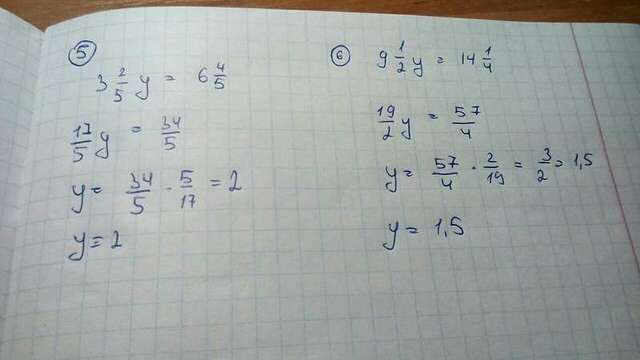 5
3 2/5 y = 6 4/5
17/5 y = 34/5
y = 34/5 · 5/17 = 2
y = 2
6
9 1/2 y = 14 1/4
19/2 y = 57/4
y = 57/4 · 2/19 = 3/2 = 1,5
y = 1,5